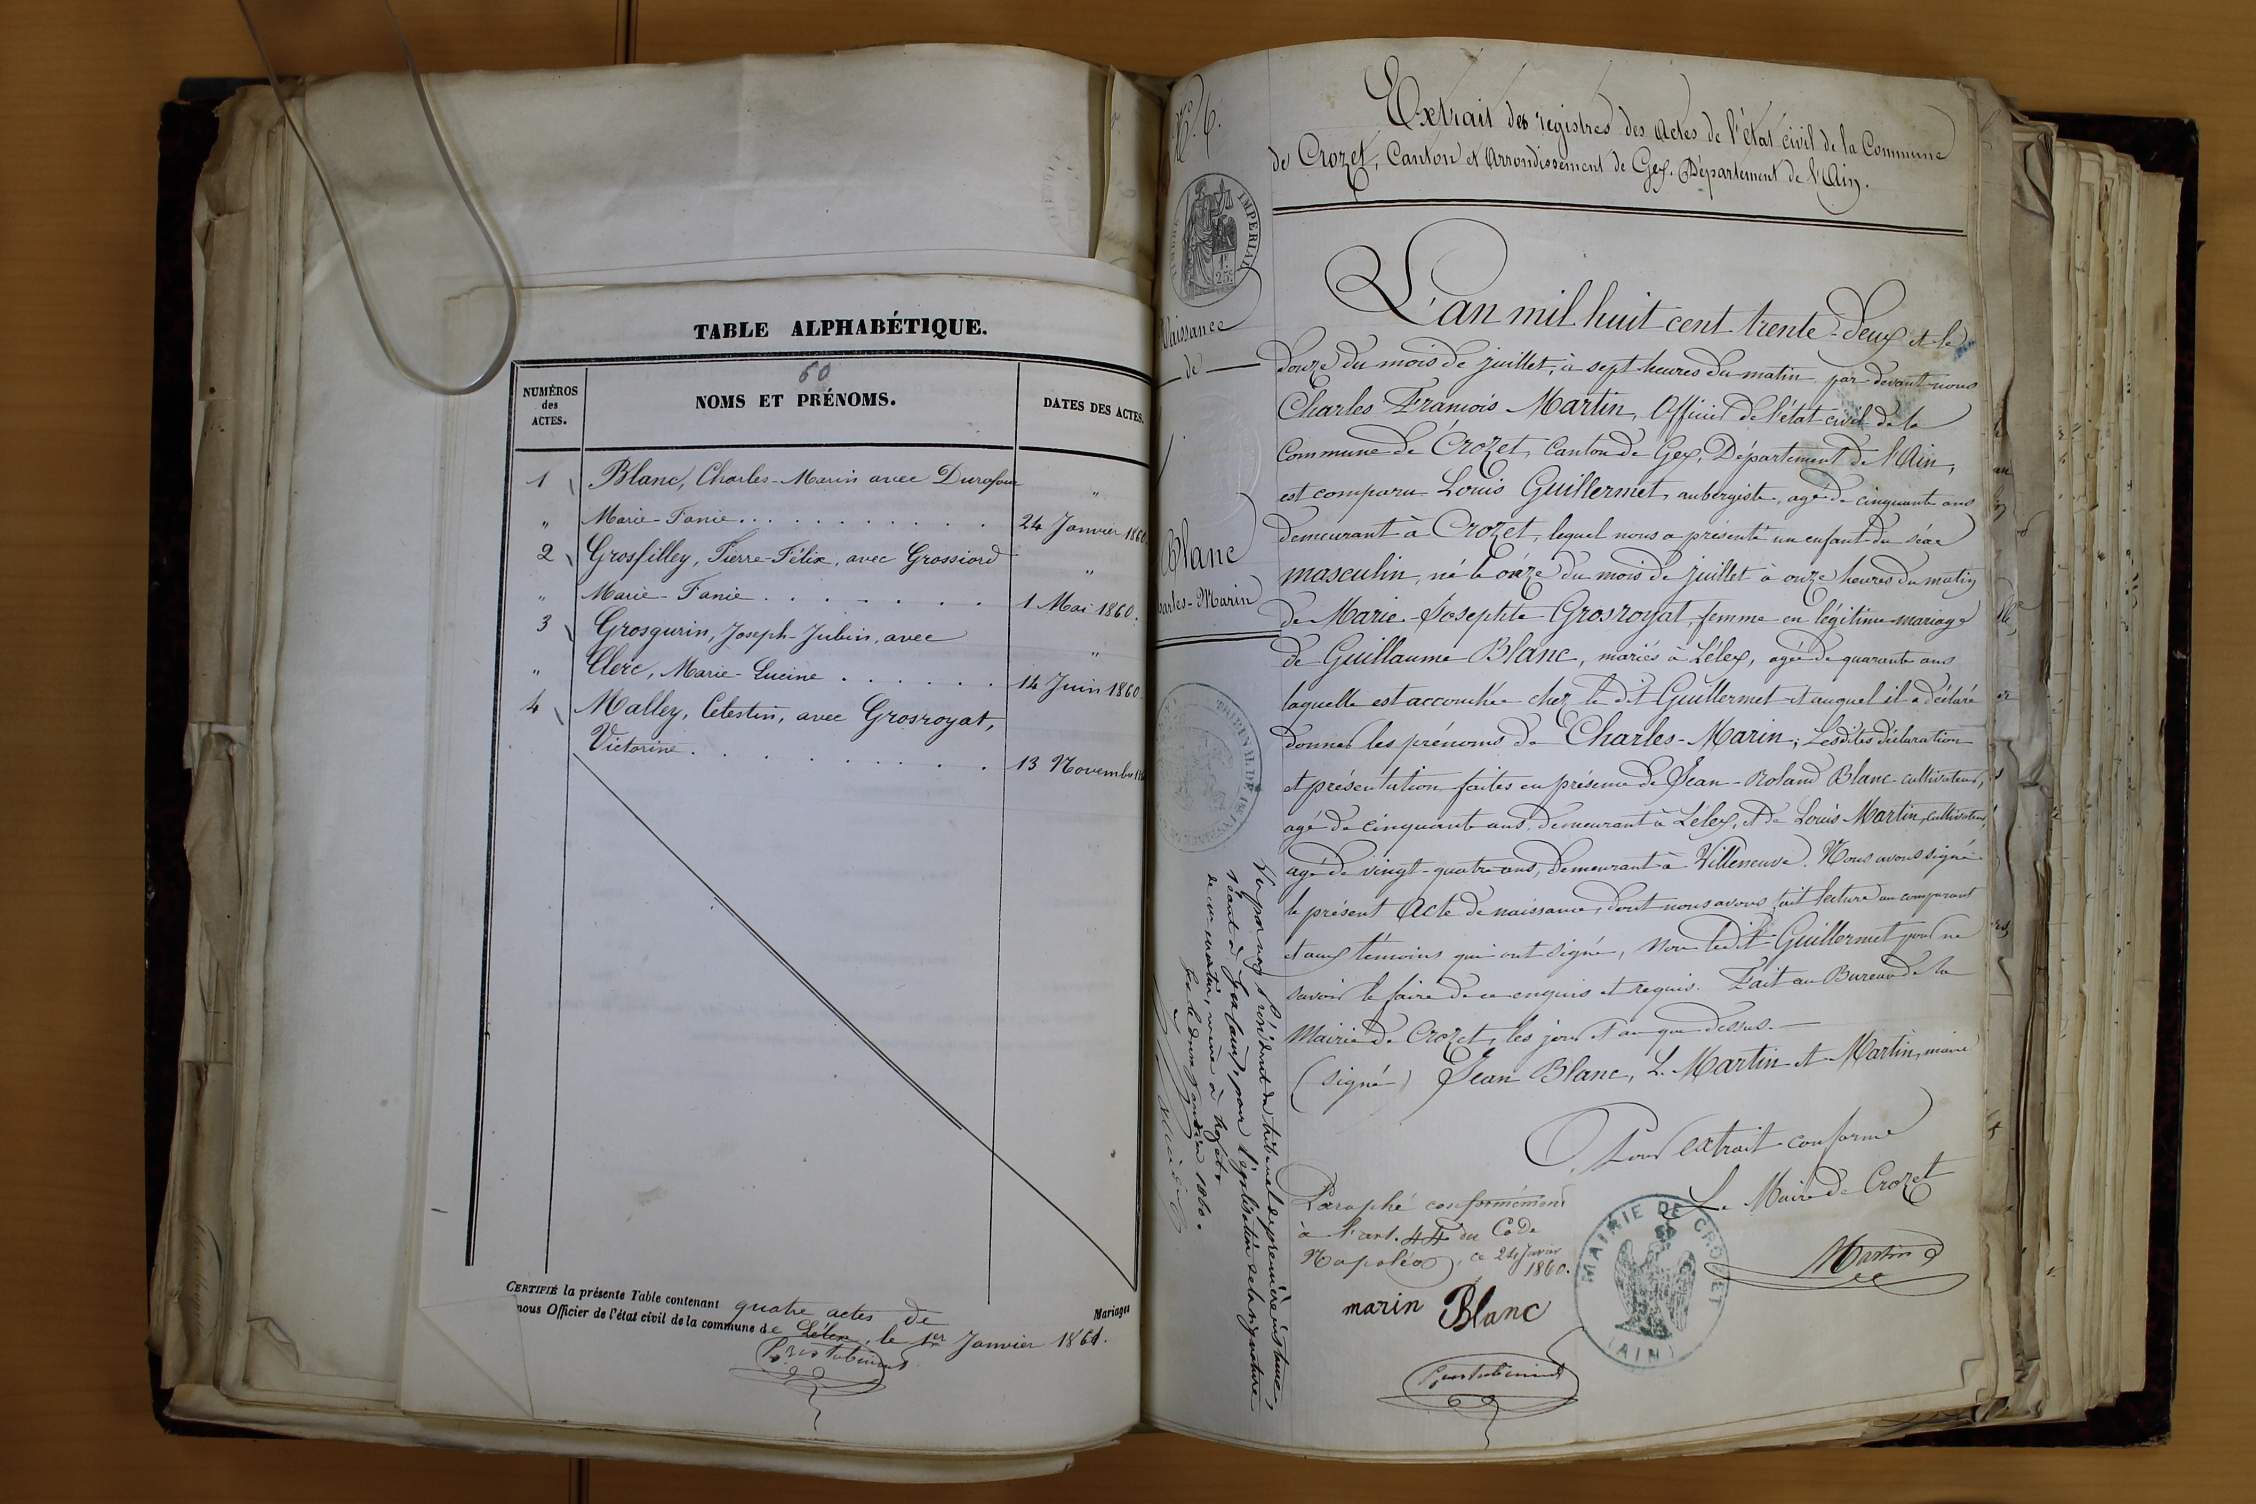 TABLE ALPHABÉTIQUE.
60
NUMÉROS
des
ACTES.
NOMS ET PRÉNOMS.
DATES DES ACTES.
1 Blanc, Charles-Marin avec Durafour "
" Marie-Fanie . . . . . . . . . . . 24 Janvier 1860.
2 Grosfilley, Pierre-Félix, avec Grossiord "
" Marie-Fanie . . . . . . . 1 Mai 1860.
3 Grosgurin, Joseph-Jubin, avec "
" Clerc, Marie-Lucine . . . . . . 14 Juin 1860
4 Malley, Célestin, avec Grosroyat,
Victorine . . . . . . . . . 13 Novembre
CERTIFIÉ la présente Table contenant quatre actes de Mariages
nous Officier de l'état civil de la commune de Lélex, le 1er Janvier 1861.
N° 6.
Extrait des registres des actes de l'état civil de la Commune
de Crozet, Canton et Arrondissement de Gex. Département de l'Ain.
TIMBRE IMPÉRIAL
1f
25c
Naissance
de
Blanc
Charles-Marin
L'an mil huit cent trente-deux et le
douze du mois de juillet, à sept heures du matin par devant nous
Charles François Martin, Officier de l'état civil de la
Commune de Crozet, canton de Gex, Département de l'Ain,
est comparu Louis Guillermet, aubergiste, agé de cinquante ans
demeurant à Crozet, lequel nous a présenté un enfant du sexe
masculin, né le onze du mois de juillet à onze heures du matin
de Marie Josephte Grosroyat, femme en légitime mariage
de Guillaume Blanc, mariés à Lélex, agée de quarante ans
laquelle est accouchée chez le dit Guillermet et auquel il a déclaré
donner les prénoms de Charles-Marin; Lesdites déclaration
et présentation faites en présence de Jean-Roland Blanc cultivateur,
agé de cinquante ans, demeurant à Lélex, et de Louis Martin, cultivateur,
agé de vingt-quatre ans, demeurant à Villeneuve. Nous avons signé
le présent acte de naissance, dont nous avons fait lecture au comparant
et aux témoins qui ont signé, non ledit Guillermet pour ne
savoir le faire de ce enquis et requis. Fait au Bureau de la
Mairie de Crozet, les jour et an que dessus.
(signé) Jean Blanc, L. Martin et Martin, maire
Pour extrait conforme
Le Maire de Crozet
Martin
Paraphé conformément
à l'art. 44 du Code
Napoléon, ce 24 Janvier
1860.
marin Blanc
MAIRIE DE CROZET
(AIN)
TRIBUNAL DE 1re INSTANCE
Vu par nous Président du tribunal de première instance
séant à Gex (ain), pour légalisation de la signature
de m. martin, maire à Crozet,
Gex le douze janvier 1860.